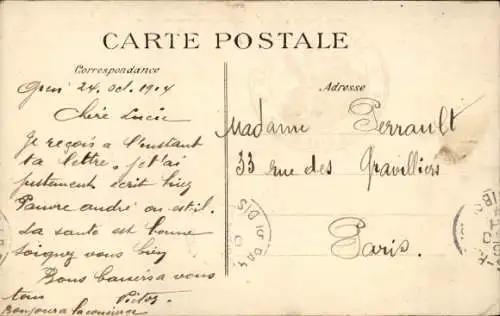 CARTE POSTALE
Correspondance
Adresse
24. oct. 1914
Chère Lucie
Je reçois a l'instant
ta lettre, je t'ai
justement écrit hier
Pauvre andré ou est-il.
La santé est bonne
soignez vous bien
Bons baisers a vous
tous Victor
Bonjour a la concierge
Madame Perrault
33 rue des Gravilliers
Paris.